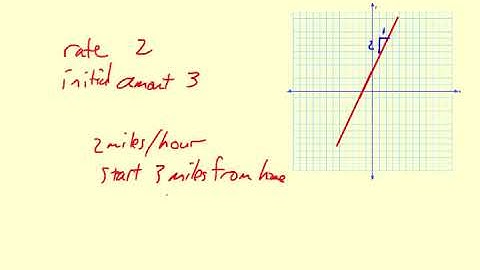 rate 2
initial amount 3
2 miles/hour
start 3 miles from home
1
2